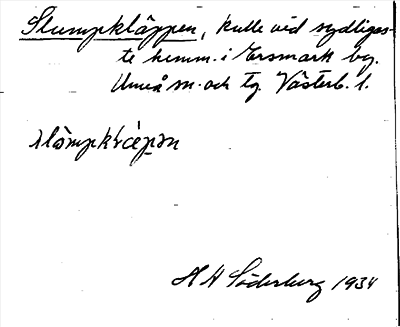 Slumpkläppen, kulle vid sydligas-
te hemm. i Ersmark by.
Umeå sn. och tg. Västerb. l.
H H Söderburg 1934